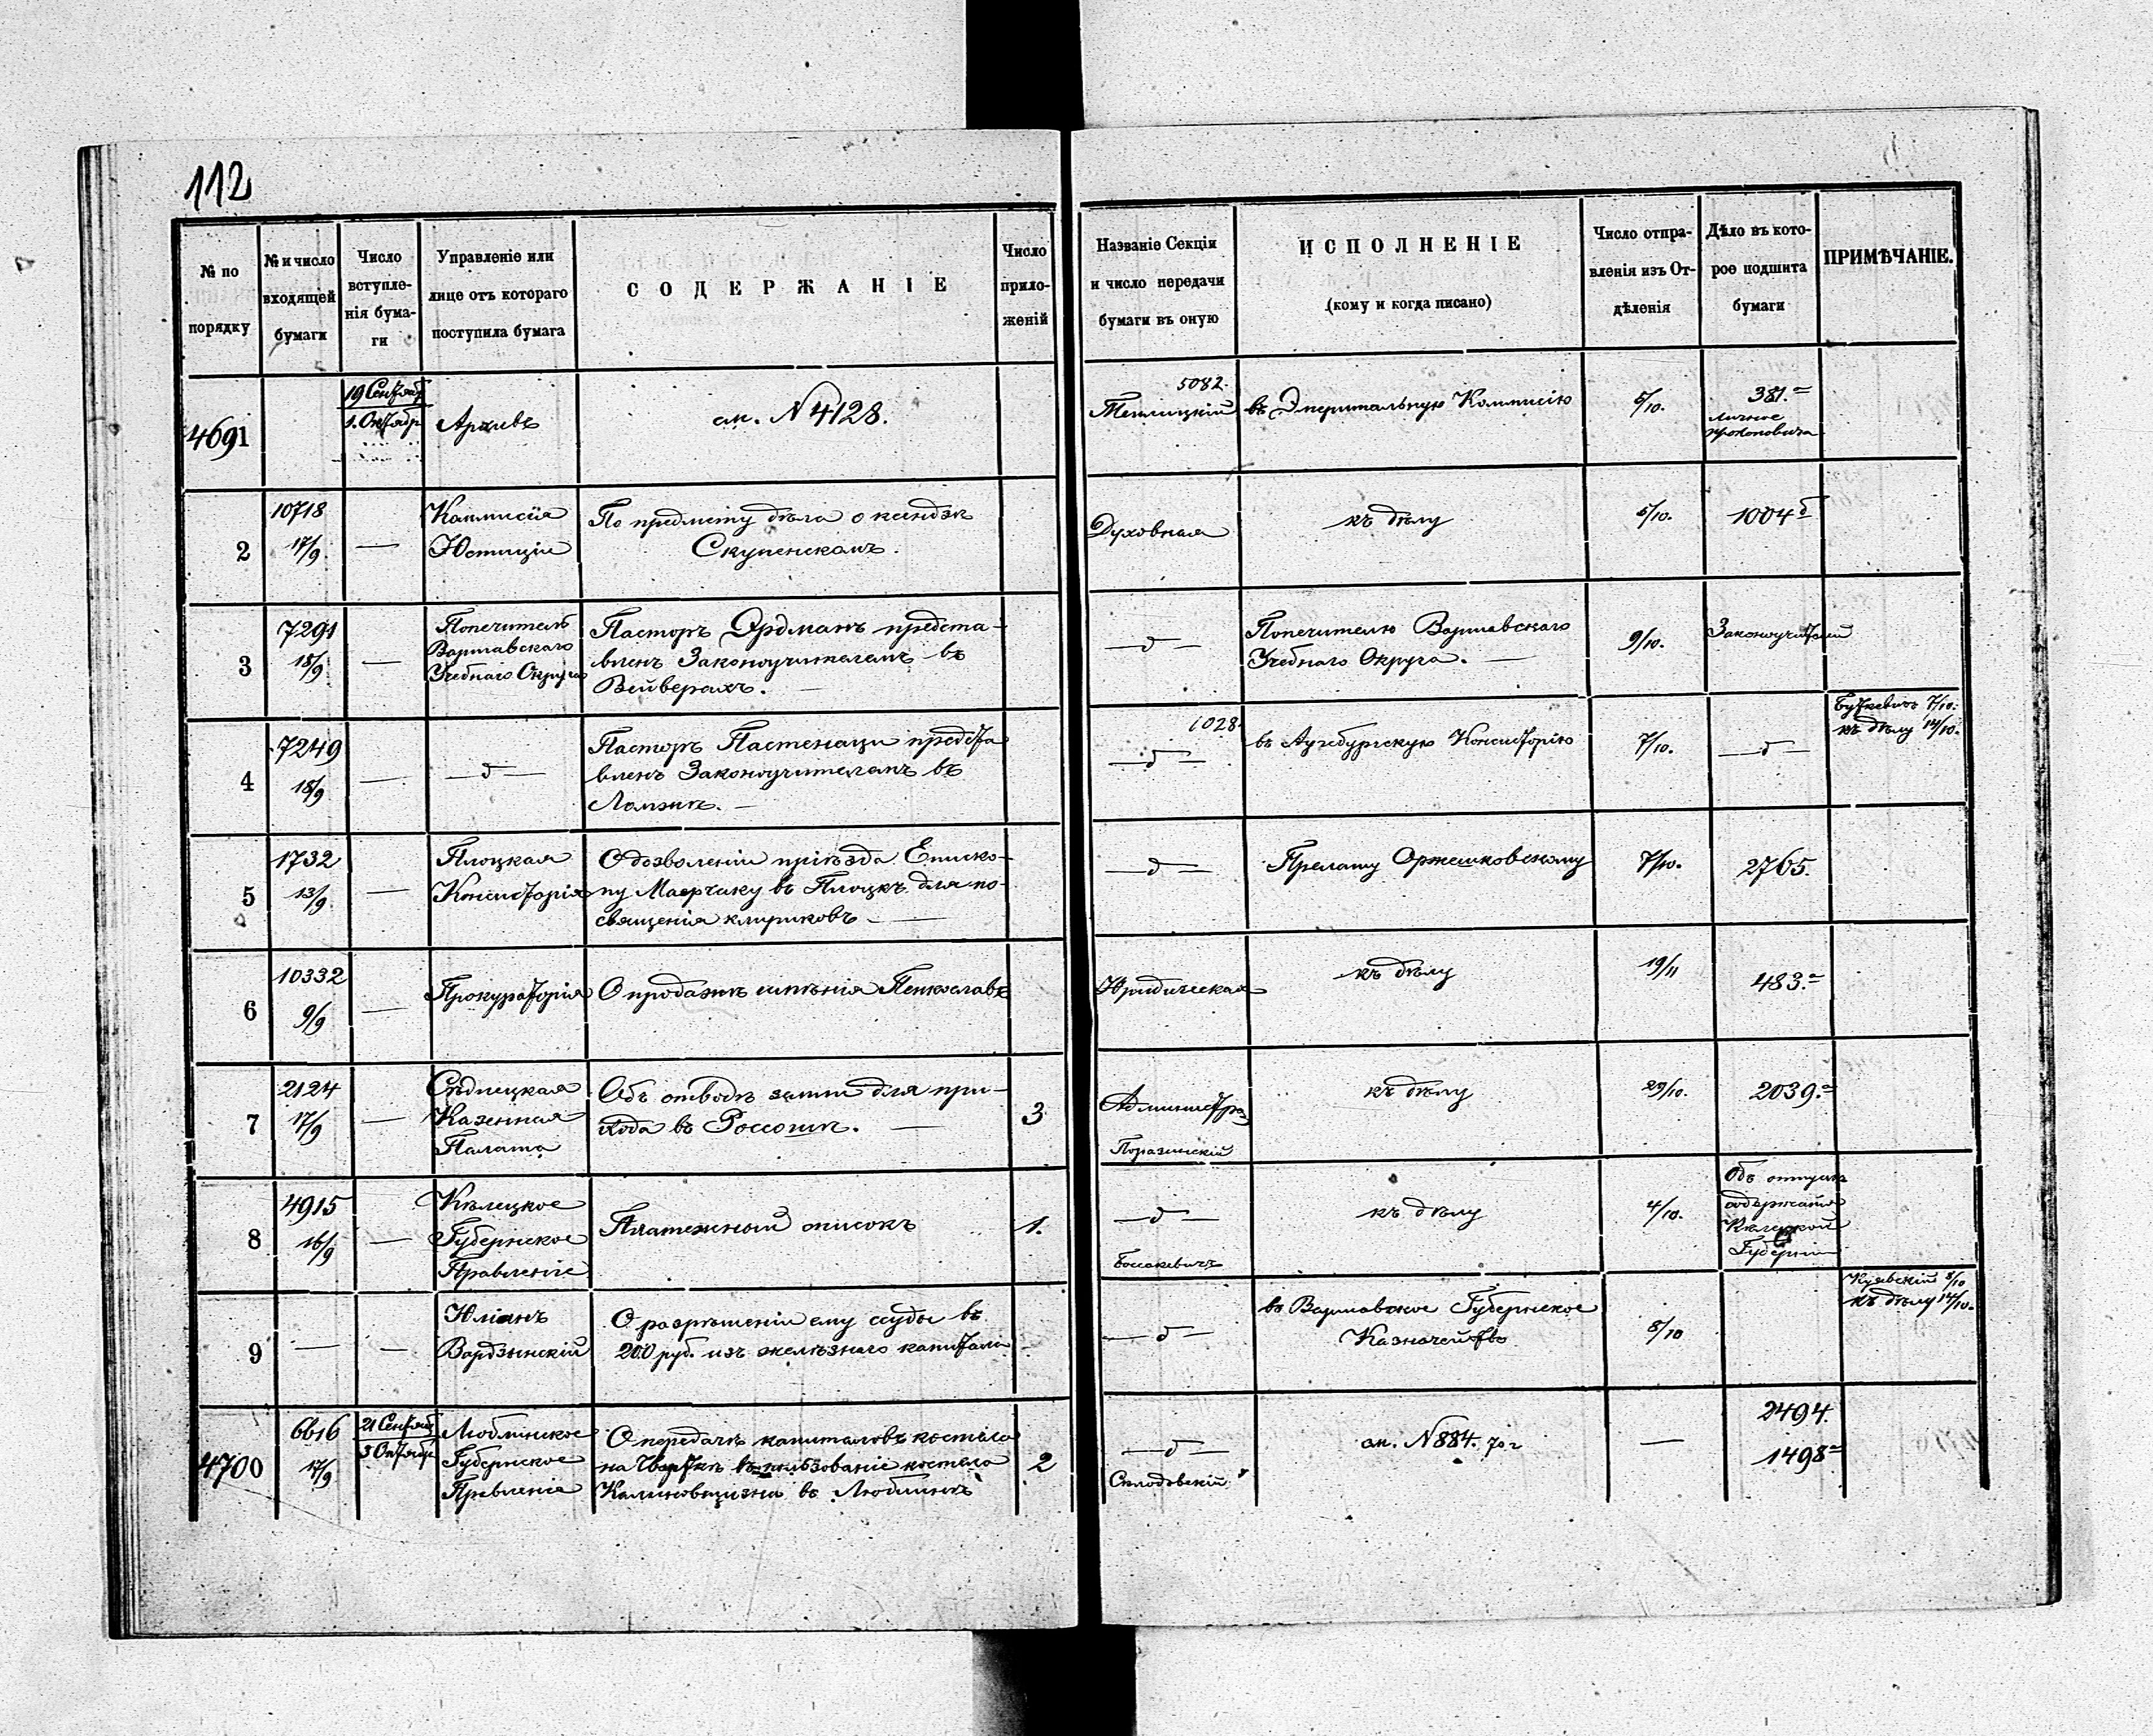 112
№ по порядку
№ и число входящей бумаги
Число вступле-
нія бума-
ги
Управленіе или
лице отъ котораго
поступила бумага
СОДЕРЖАНІЕ
Число
прило-
женій
Названіе Секціи
и число передачи
бумаги въ оную
ИСПОЛНЕНІЕ
(кому и когда писано)
Число отпра-
вленія изъ От-
дѣленія
Дѣло въ кото-
рое подшита
бумаги
ПРИМѢЧАНІЕ.
4691
19 Сентяб
1. Октябр
Архивъ
см. N 4128.
5082.
въ Эмеритальную Коммисію
5/10.
381.а
личное
Прокоповича
2
10718
17/9
—
Коммисія
Юстиціи
По предмету дѣла о ксендзѣ
Скупенскомъ.
Духовная
къ дѣлу
5/10.
1004 б
3
7291
18/9
—
Попечитель
Варшавскаго
Учебнаго Округа
Пасторъ Эрдманъ предста-
вленъ Законоучителемъ въ
Вейверахъ. —
— д —
Попечителю Варшавскаго
Учебнаго Округа. —
9/10.
Законоучителей
4
7249
18/9
—
— д —
Пасторъ Пастенаци предста
вленъ Законоучителемъ въ
Ломжѣ. —
1028
— д —
въ Аугсбургскую Консисторію
7/10.
— д —
Буткевичъ 7/10.
къ дѣлу 14/10.
5
1732
13/9
—
Плоцкая
Консисторія
О дозволеніи пріѣзда Еписко-
пу Маерчаку въ Плоцкъ для по-
священія клириковъ —
— д —
Прелату Оржешковскому
7/10.
2765.
6
10332
9/9
—
Прокураторія
О продажѣ имѣнія
Юридическая
къ дѣлу
19/11
483.а
7
2124
17/9
—
Сѣдлецкая
Казенная
Палата
Объ отводѣ земли для при-
хода въ Россошѣ. —
3
Администра
къ дѣлу
29/10.
2039.а
8
4915
16/9
—
Кѣлецкое
Губернское
Правленіе
Платежный списокъ
1.
— д —
къ дѣлу
4/10.
Объ отпускѣ
содержанія
Кѣлецкой
Губерніи
9
—
—
Юліанъ
Вардзынскій
О разрѣшеніи ему ссуды въ
200 руб. изъ желѣзнаго капитала
— д —
въ Варшавское Губернское
Казначейство
8/10
Куявскій 8/10
къ дѣлу 14/10.
4700
6616
17/9
21 Сентяб
3 Октябр
Люблинское
Губернское
Правленіе
О передачѣ капиталовъ костела
на Чварткѣ въ пользованіе костела
Калиновщизны въ Люблинѣ
2
— д —
Склодовскій
см. N 884. 70 г
—
2494.
1498 а